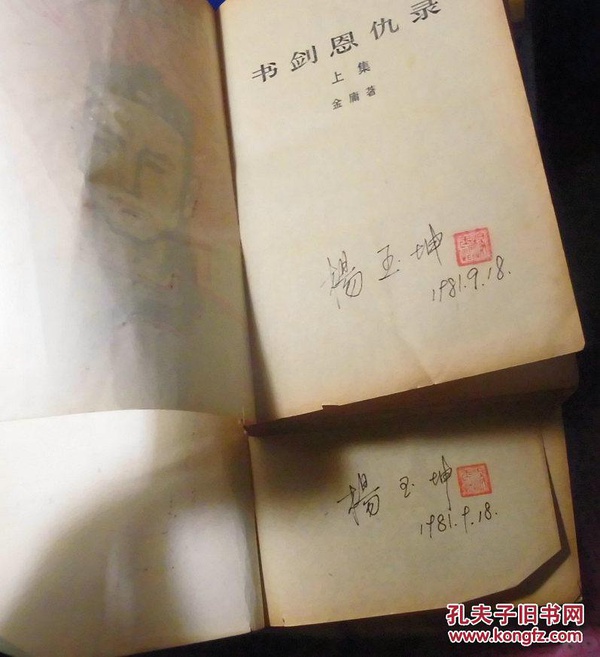 书剑恩仇录
上集
金庸著
楊玉坤
1981.9.18.
楊玉坤
1981.9.18.
孔夫子旧书网
www.kongfz.com